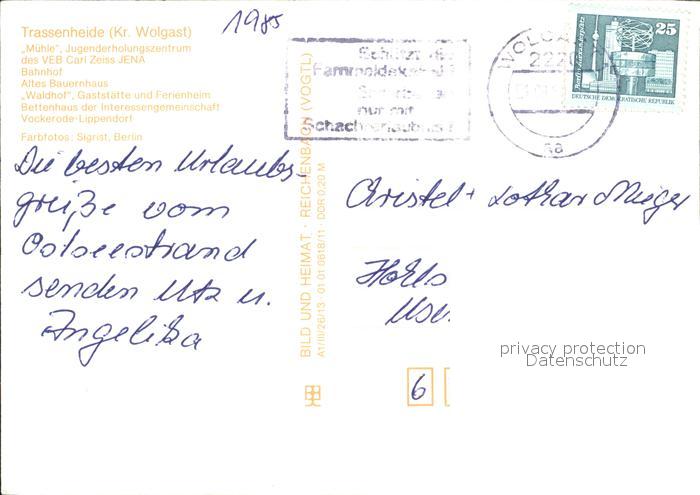 1985
Trassenheide (Kr. Wolgast)
„Mühle", Jugenderholungszentrum
des VEB Carl Zeiss JENA
Bahnhof
Altes Bauernhaus
„Waldhof", Gaststätte und Ferienheim
Bettenhaus der Interessengemeinschaft
Vockerode-Lippendorf
Farbfotos: Sigrist, Berlin
Die besten Urlaubs-
grüße vom
Ostseestrand
senden Utz u.
Angelika
BILD UND HEIMAT · REICHENBACH (VOGTL)
A1/III/26/13 · 01 01 0618/11 · DDR 0,20 M
nur mit
WOLGA
2220
aa
25
Berlin-Alexanderplatz
DEUTSCHE DEMOKRATISCHE REPUBLIK
Christel + Lothar
6
privacy protection
Datenschutz